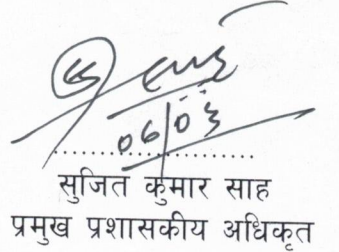 06/03
सुजित कुमार साह
प्रमुख प्रशासकीय अधिकृत